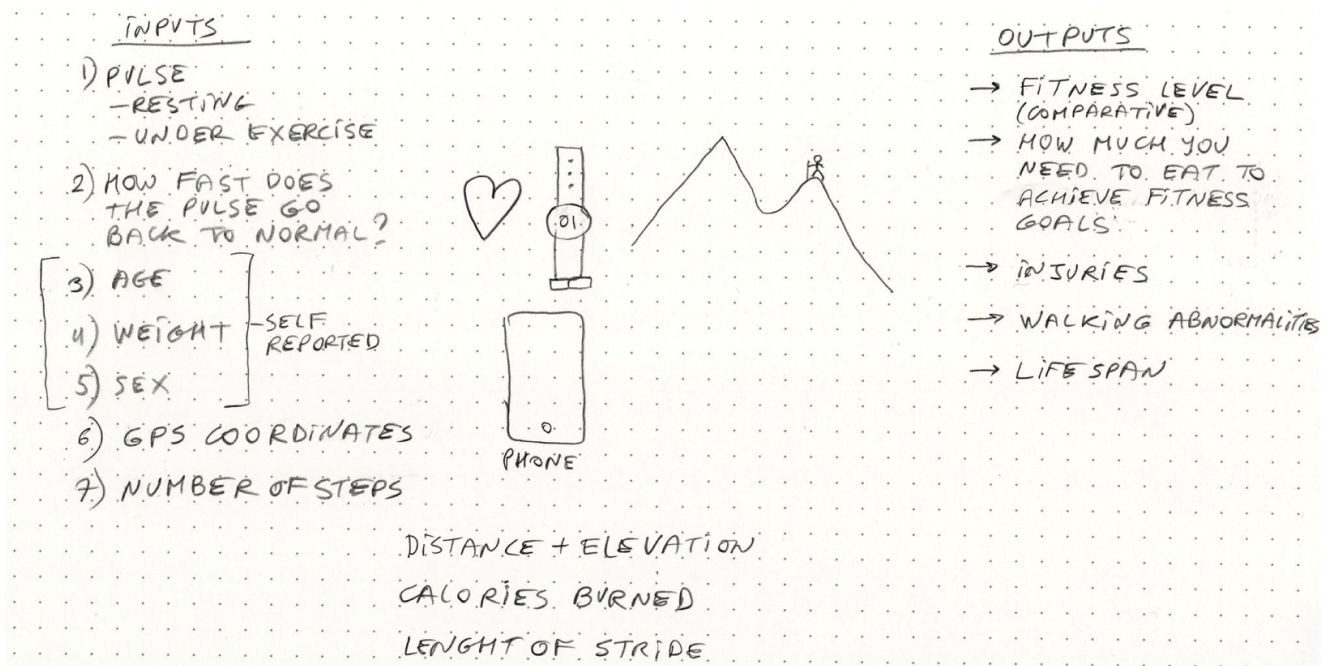 INPUTS
1) PULSE
- RESTING
- UNDER EXERCISE
2) HOW FAST DOES
THE PULSE GO
BACK TO NORMAL?
3) AGE
4) WEIGHT
5) SEX
- SELF
REPORTED
6) GPS COORDINATES
7) NUMBER OF STEPS
01
PHONE
DISTANCE + ELEVATION
CALORIES BURNED
LENGHT OF STRIDE
OUTPUTS
→ FITNESS LEVEL
(COMPARATIVE)
→ HOW MUCH YOU
NEED TO EAT TO
ACHIEVE FITNESS
GOALS
→ INJURIES
→ WALKING ABNORMALITIES
→ LIFESPAN